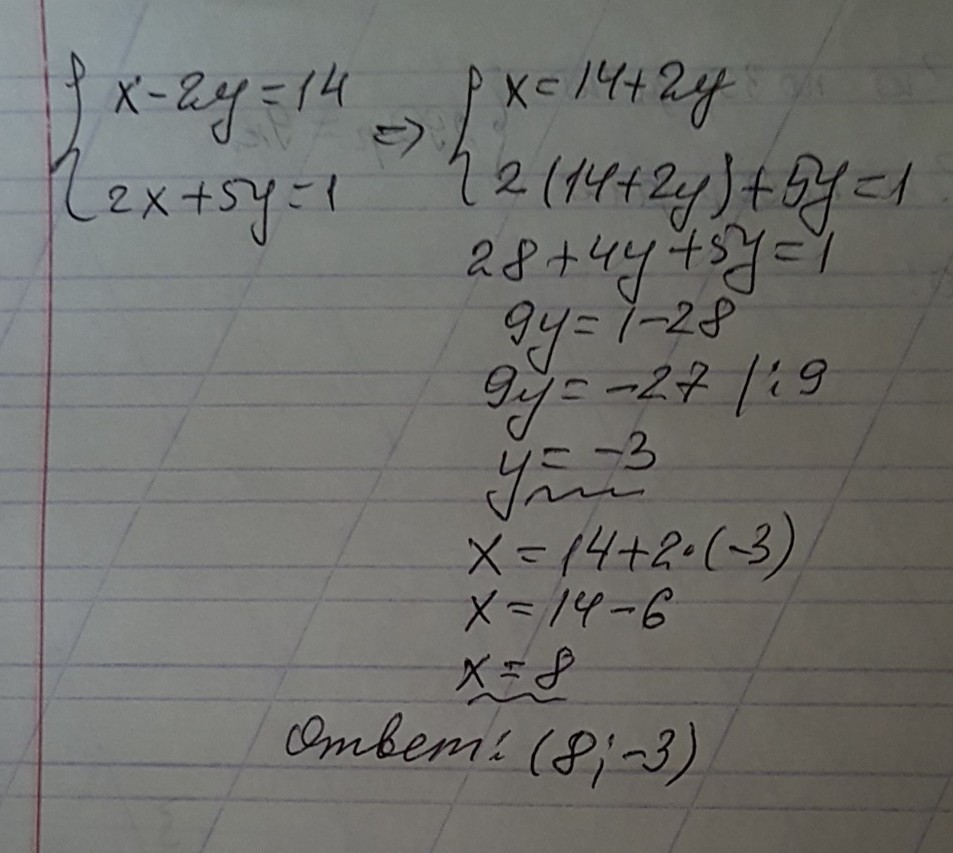 { x-2y=14 => { x=14+2y
2x+5y=1 2(14+2y)+5y=1
28+4y+5y=1
9y=1-28
9y=-27 |:9
y=-3
x=14+2·(-3)
x=14-6
x=8
Ответ: (8;-3)